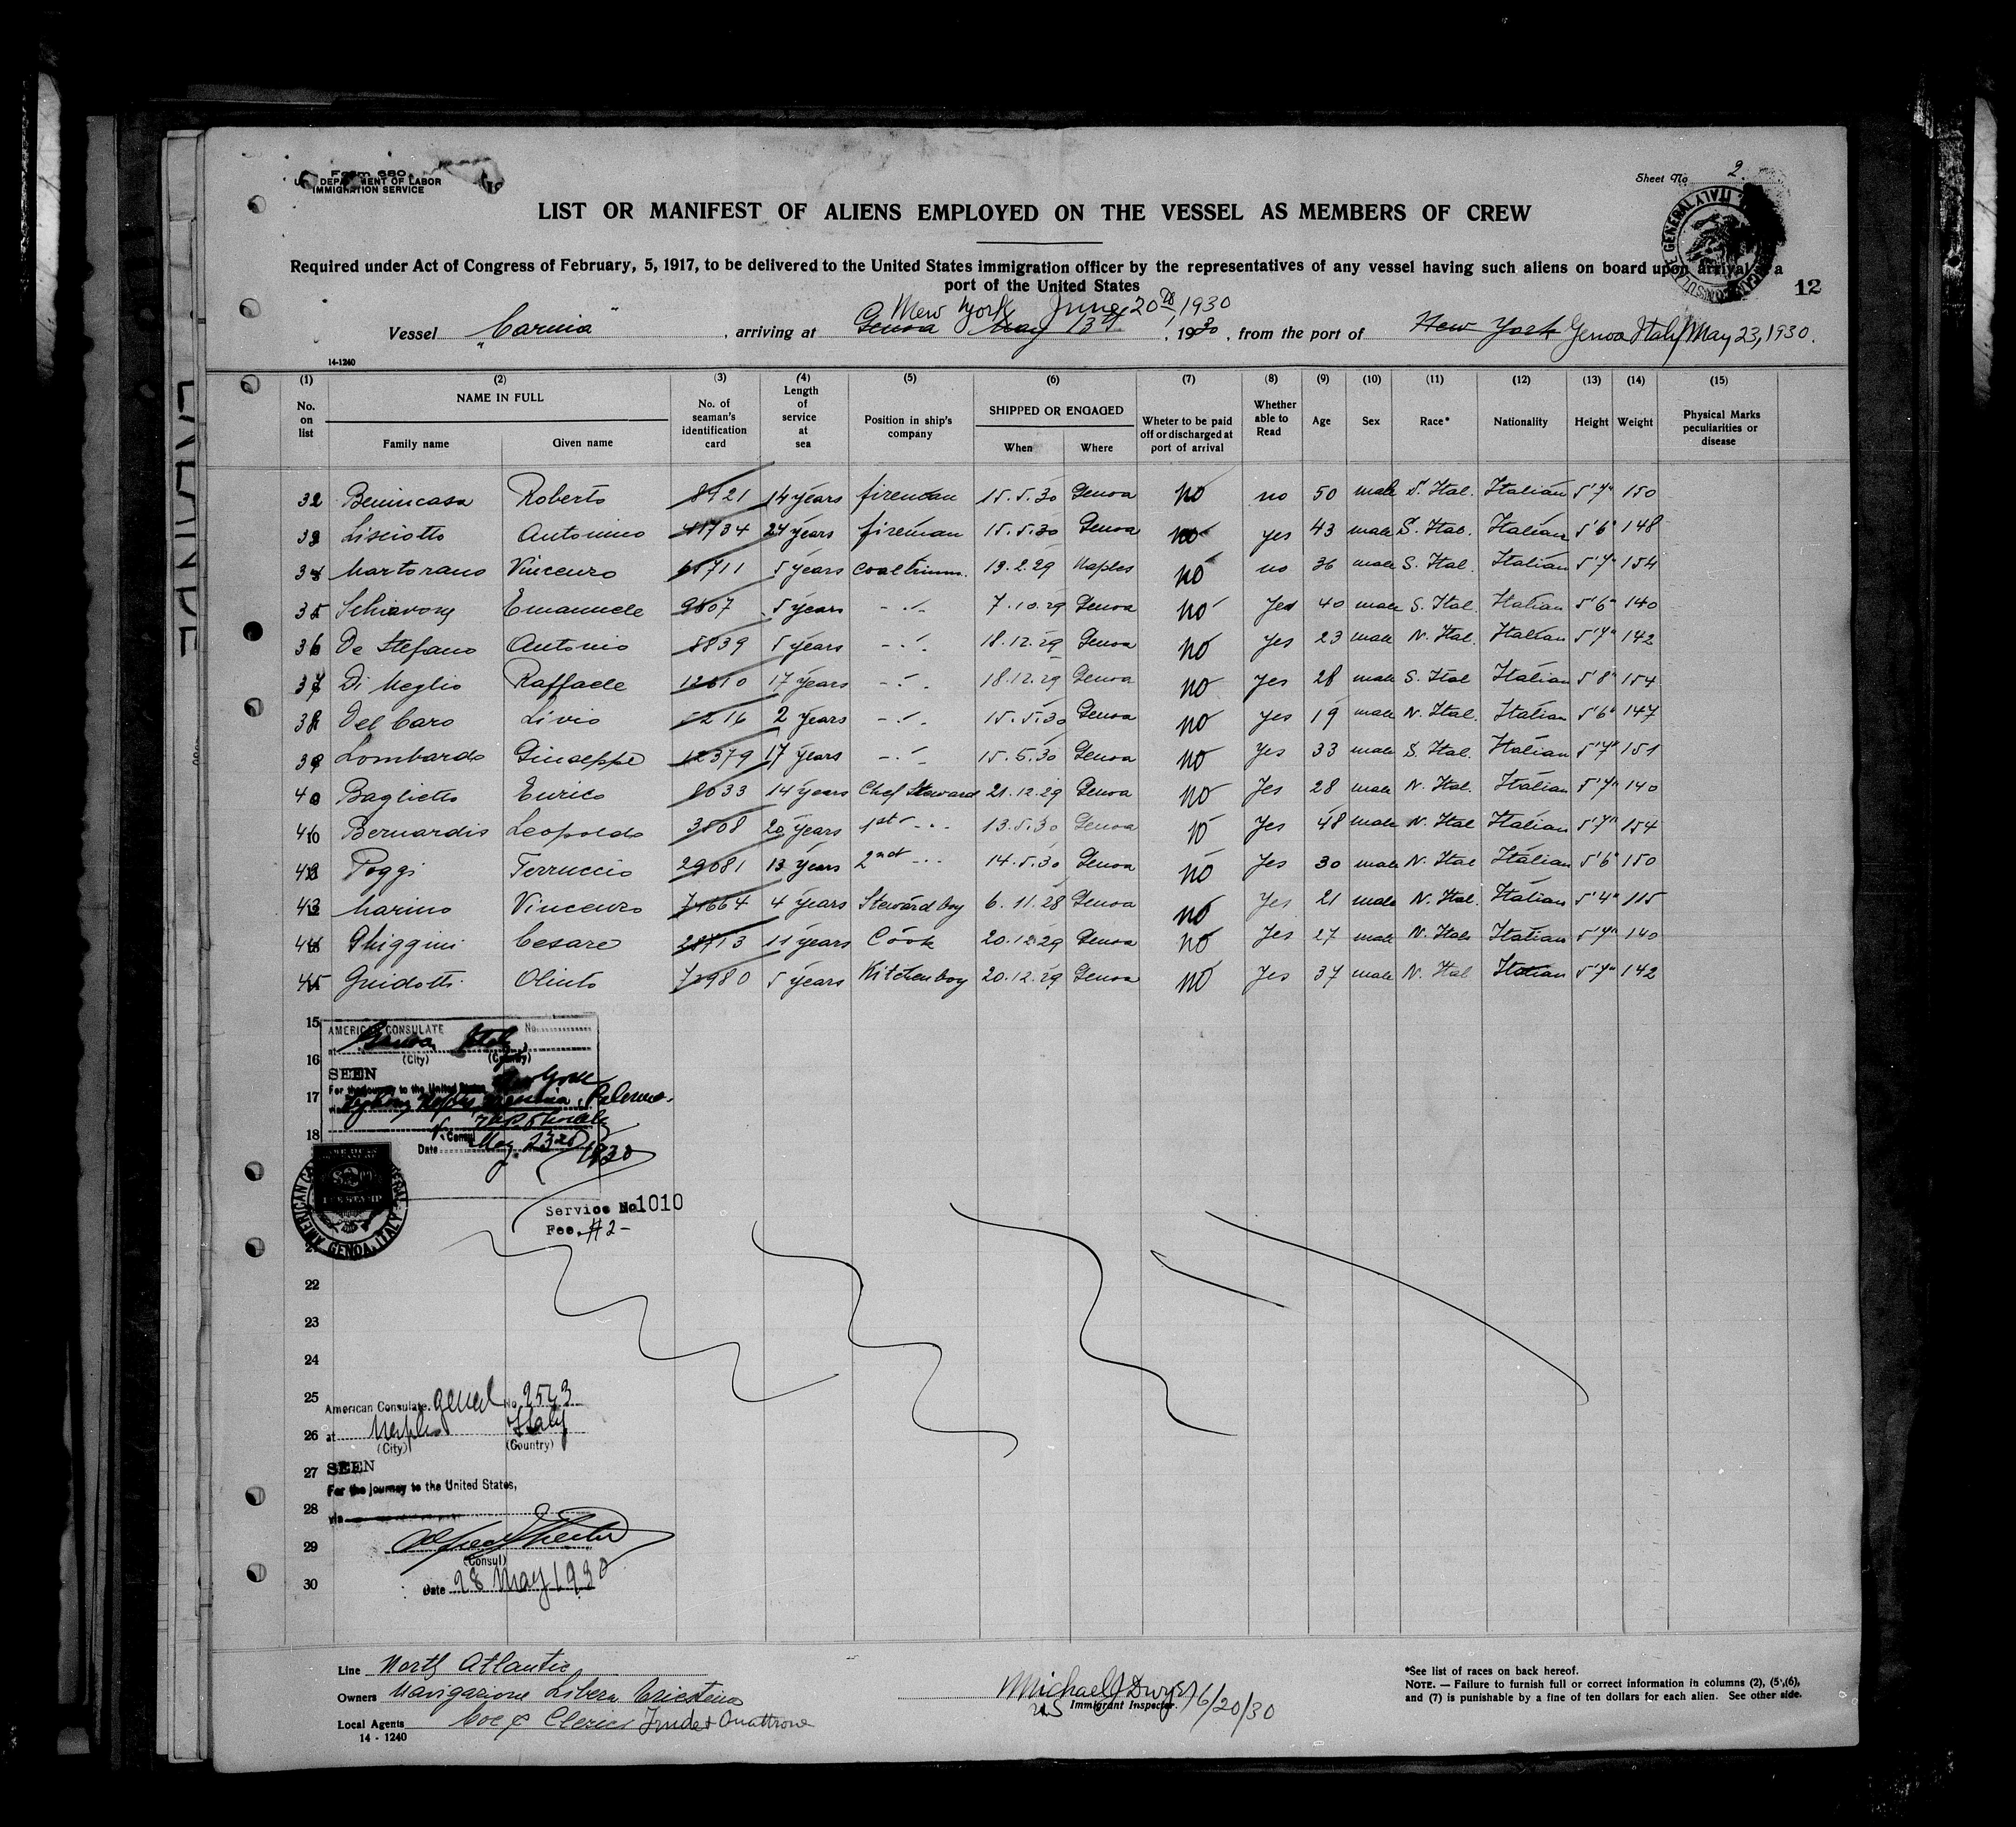 Form 680
U. S. DEPARTMENT OF LABOR
IMMIGRATION SERVICE
Sheet No 2.
LIST OR MANIFEST OF ALIENS EMPLOYED ON THE VESSEL AS MEMBERS OF CREW
Required under Act of Congress of February, 5, 1917, to be delivered to the United States immigration officer by the representatives of any vessel having such aliens on board upon arrival at a
port of the United States
12
New York June 20th 1930
Vessel "Carnia", arriving at Genoa May 13th, 1930, from the port of New York Genoa Italy May 23, 1930.
14-1240
(1) (2) (3) (4) (5) (6) (7) (8) (9) (10) (11) (12) (13) (14) (15)
No. on list NAME IN FULL Family name Given name No. of seaman's identification card Length of service at sea Position in ship's company SHIPPED OR ENGAGED When Where Wheter to be paid off or discharged at port of arrival Whether able to Read Age Sex Race* Nationality Height Weight Physical Marks peculiarities or disease
32 Benincasa Roberto 8921 14 years fireman 15.5.30 Genoa no no 50 male S. Ital. Italian 5'7" 150
33 Lisciotto Antonino 41734 24 years fireman 15.5.30 Genoa no yes 43 male S. Ital. Italian 5'6" 148
34 Martorano Vincenzo 61711 5 years Coaltrimm. 19.2.29 Naples no no 36 male S. Ital. Italian 5'7" 154
35 Schiavone Emanuele 9807 5 years -"- 7.10.29 Genoa no Yes 40 male S. Ital. Italian 5'6" 140
36 De Stefano Antonio 8839 5 years -"- 18.12.29 Genoa no Yes 23 male N. Ital. Italian 5'7" 142
37 Di Meglio Raffaele 12610 17 years -"- 18.12.29 Genoa no Yes 28 male S. Ital Italian 5'8" 154
38 Del Caro Livio 5216 2 years -"- 15.5.30 Genoa no Yes 19 male N. Ital. Italian 5'6" 147
39 Lombardo Giuseppe 12379 17 years -"- 15.5.30 Genoa no Yes 33 male S. Ital. Italian 5'7" 151
40 Baglietto Enrico 8033 14 years Chef Steward 21.12.29 Genoa no Yes 28 male N. Ital. Italian 5'7" 140
41 Bernardis Leopoldo 3808 20 years 1st -"- 13.5.30 Genoa no Yes 48 male N. Ital Italian 5'7" 154
42 Poggi Ferruccio 29081 13 years 2nd -"- 14.5.30 Genoa no Yes 30 male N. Ital Italian 5'6" 150
43 Marino Vincenzo 71664 4 years Steward boy 6.11.28 Genoa no Yes 21 male N. Ital. Italian 5'4" 115
44 Ghiggini Cesare 28413 11 years Cook 20.12.29 Genoa no Yes 27 male N. Ital Italian 5'7" 140
45 Guidotti Olinto 72980 5 years Kitchenboy 20.12.29 Genoa no Yes 37 male N. Ital Italian 5'7" 142
15 AMERICAN CONSULATE No.
at Genoa, Italy
16 (City) (Country)
SEEN
For the journey to the United States New York
17 via Naples, Messina, Palermo.
18 V. Consul
Date May 23rd 1930
AMERICAN CONSULATE GENERAL GENOA, ITALY
FEE STAMP
Service No. 1010
Fee. $2-
22
23
24
25 American Consulate General No. 2543
26 at Naples Italy
(City) (Country)
27 SEEN
For the journey to the United States,
28 via
29
(Consul)
30 Date 28 May 1930
Line North Atlantic
Owners Navigazione Libera Triestina
Local Agents Coe & Clerici
14 - 1240
Michael J Dwyer 6/20/30
US Immigrant Inspector.
*See list of races on back hereof.
NOTE. — Failure to furnish full or correct information in columns (2), (5), (6),
and (7) is punishable by a fine of ten dollars for each alien. See other side.